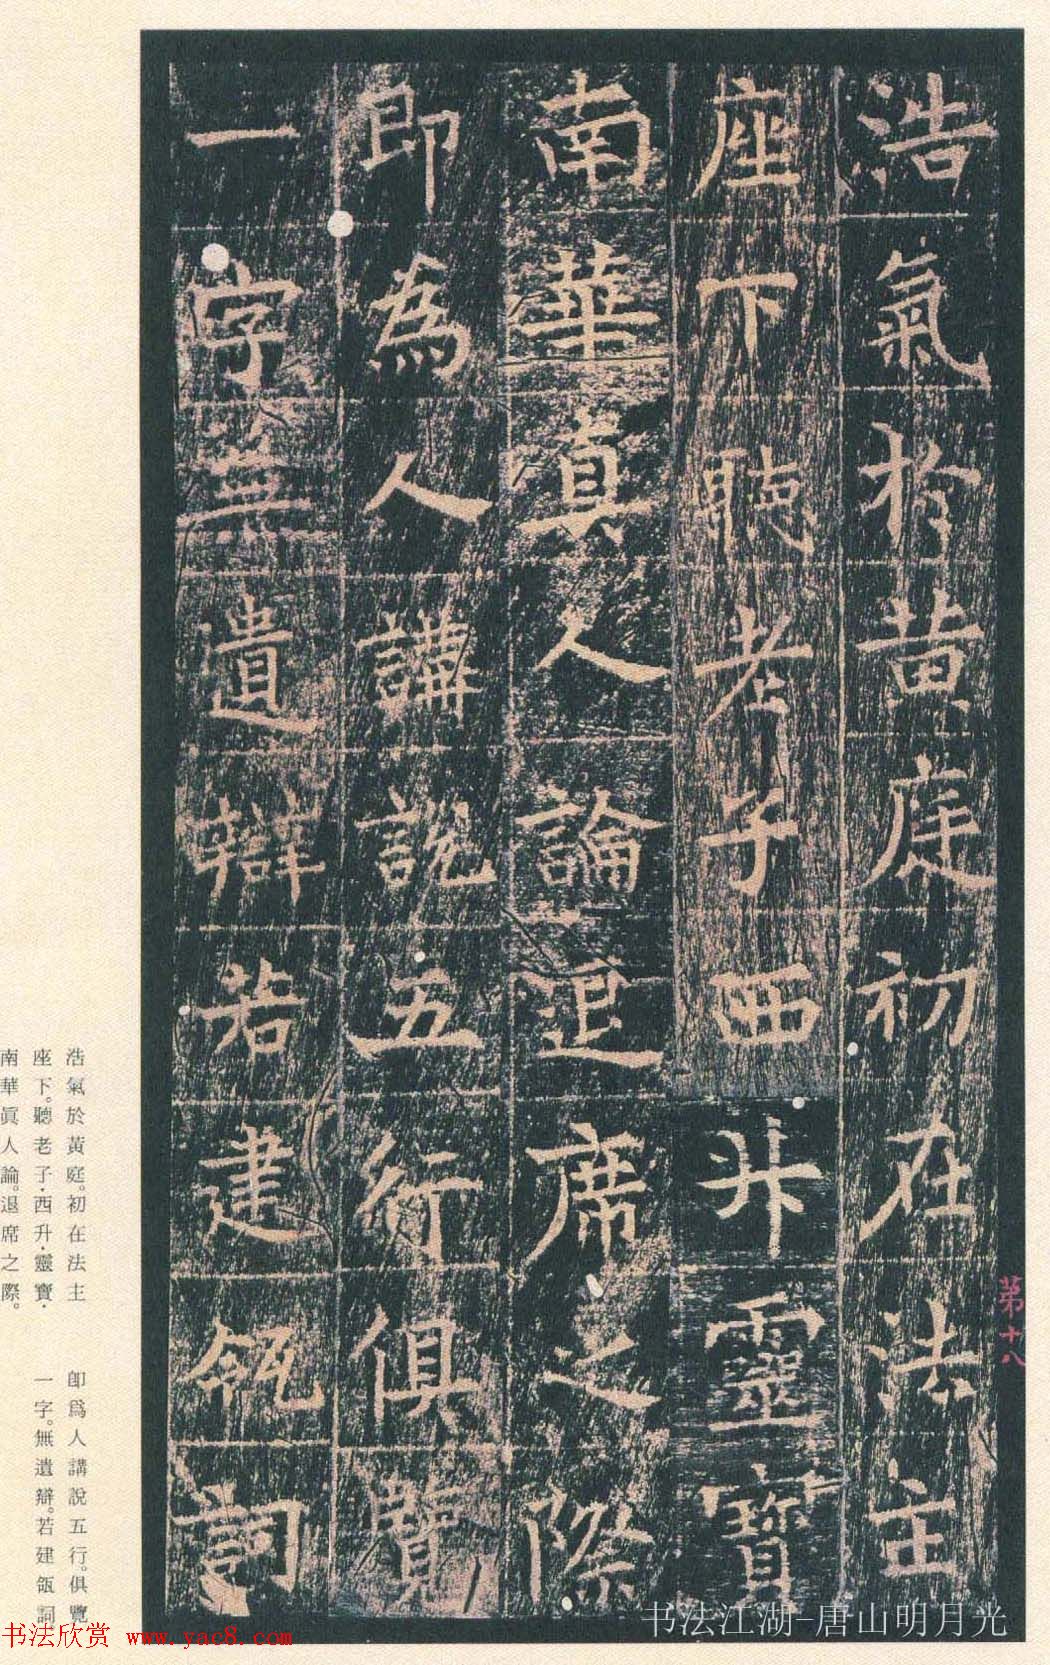 浩氣於黄庭初在法主
座下聽老子西昇靈寶
南華真人論退席之際
即為人講說五行俱覽
一字無遺辯若建瓴詞
第十八
浩氣於黃庭。初在法主
座下。聽老子·西升·靈寶·
南華眞人論。退席之際。
卽爲人講說五行。俱覽
一字。無遺辯。若建瓴詞。
书法江湖-唐山明月光
书法欣赏 www.yac8.com